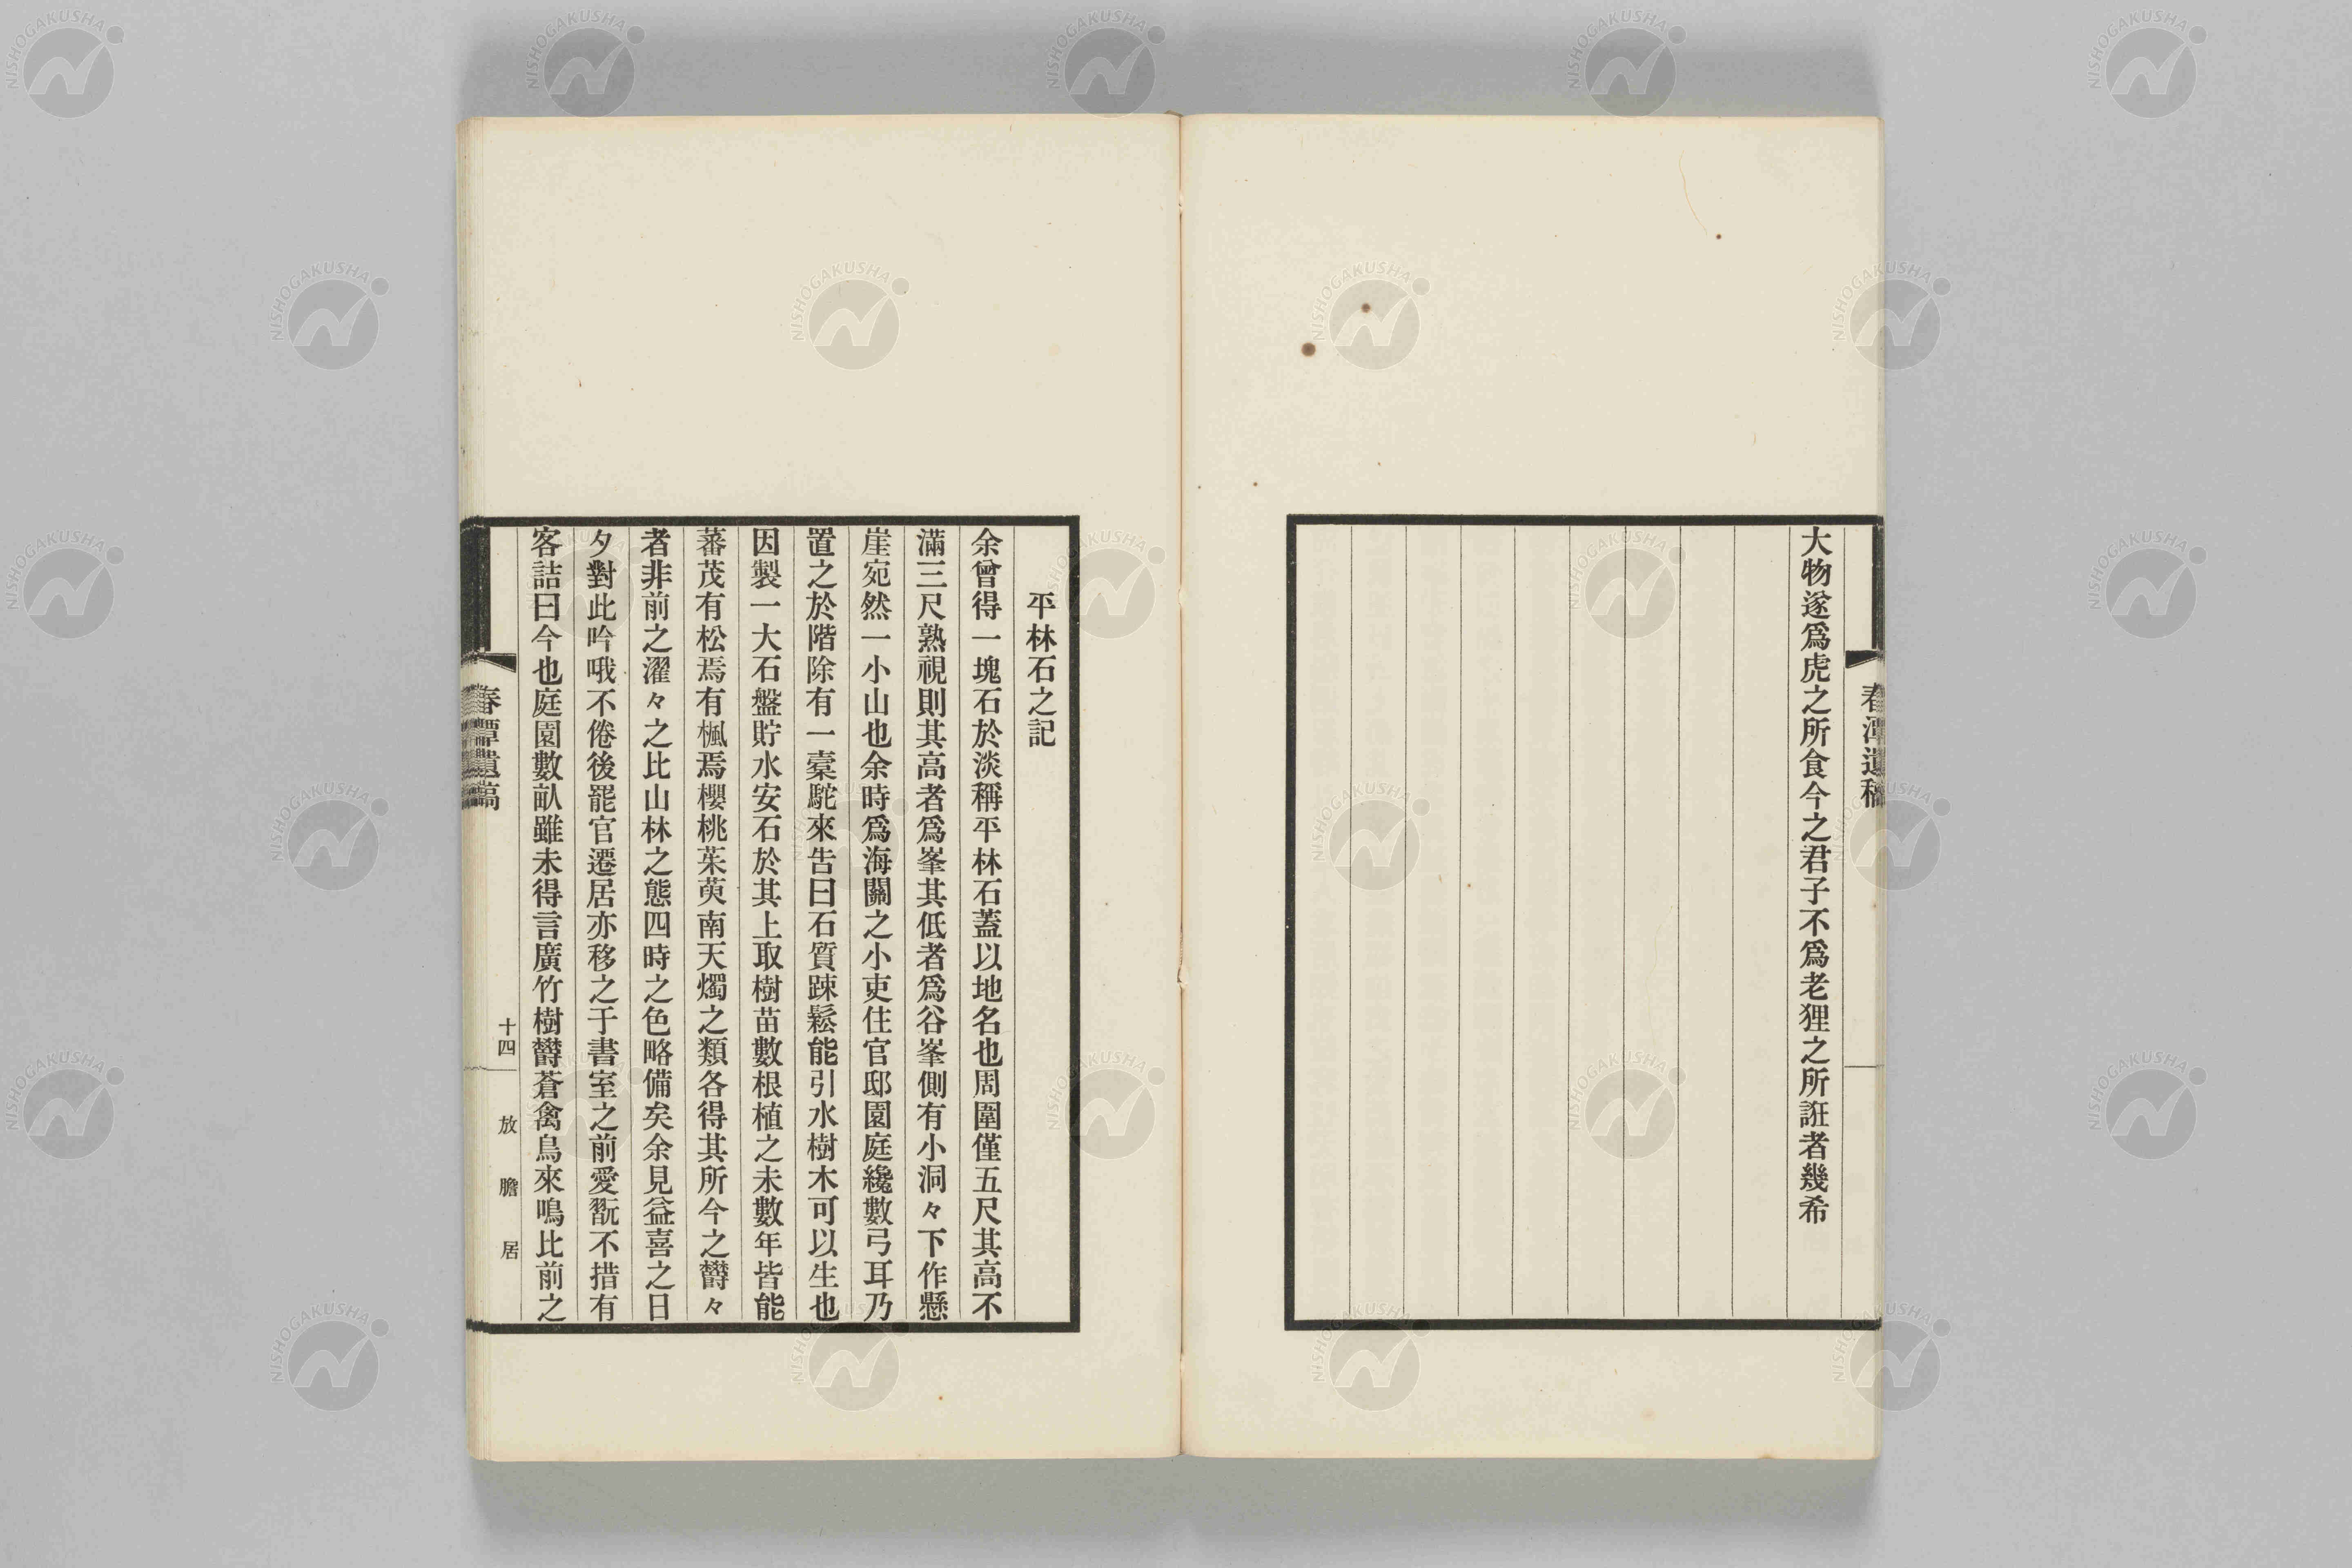 春潭遺稿
大物遂爲虎之所食今之君子不爲老狸之所誑者幾希
平林石之記
余曾得一塊石於淡稱平林石蓋以地名也周圍僅五尺其高不
滿三尺熟視則其高者爲峯其低者爲谷峯側有小洞々下作懸
崖宛然一小山也余時爲海關之小吏住官邸園庭纔數弓耳乃
置之於階除有一橐駝來告曰石質踈鬆能引水樹木可以生也
因製一大石盤貯水安石於其上取樹苗數根植之未數年皆能
蕃茂有松焉有楓焉櫻桃茱萸南天燭之類各得其所今之欝々
者非前之濯々之比山林之態四時之色略備矣余見益喜之日
夕對此吟哦不倦後罷官遷居亦移之于書室之前愛翫不措有
客詰曰今也庭園數畝雖未得言廣竹樹欝蒼禽鳥來鳴比前之
春潭遺稿
十四
放膽居
NISHOGAKUSHA